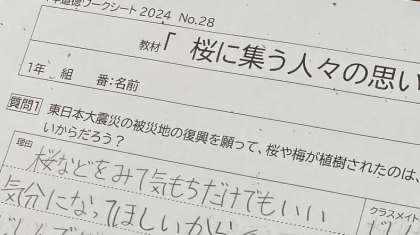 年道徳ワークシート 2024 No.28
教材「 桜に集う人々の思い
1年 組 番:名前
質問1 東日本大震災の被災地の復興を願って、桜や梅が植樹されたのは、
いからだろう?
理由
桜などをみて気もちだけでもいい
気分になってほしいから
クラスメイト